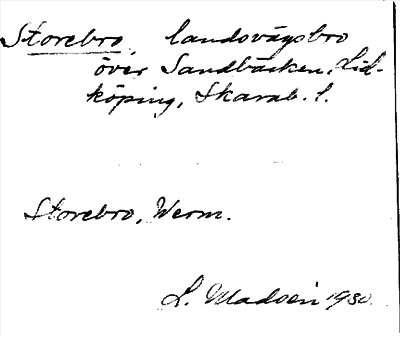 Storebro, landsvägsbro
över Sandbäcken, Lid-
köping, Skarab. l.
Storebro, Werm.
L. Madsén 1930.